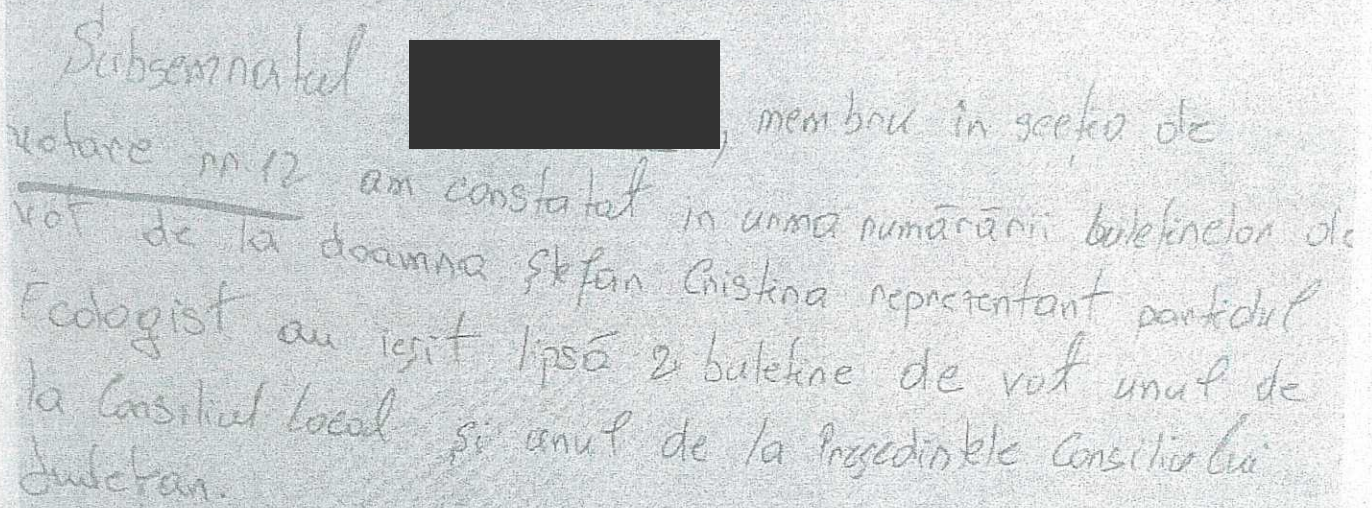 Subsemnatul , membru in secția de
votare nr. 12 am constatat in urma numărării buletinelor de
vot de la doamna Ștefan Cristina reprezentant partidul
Ecologist au ieșit lipsă 2 buletine de vot unul de
la Consiliul Local și unul de la Președintele Consiliului
Județean.